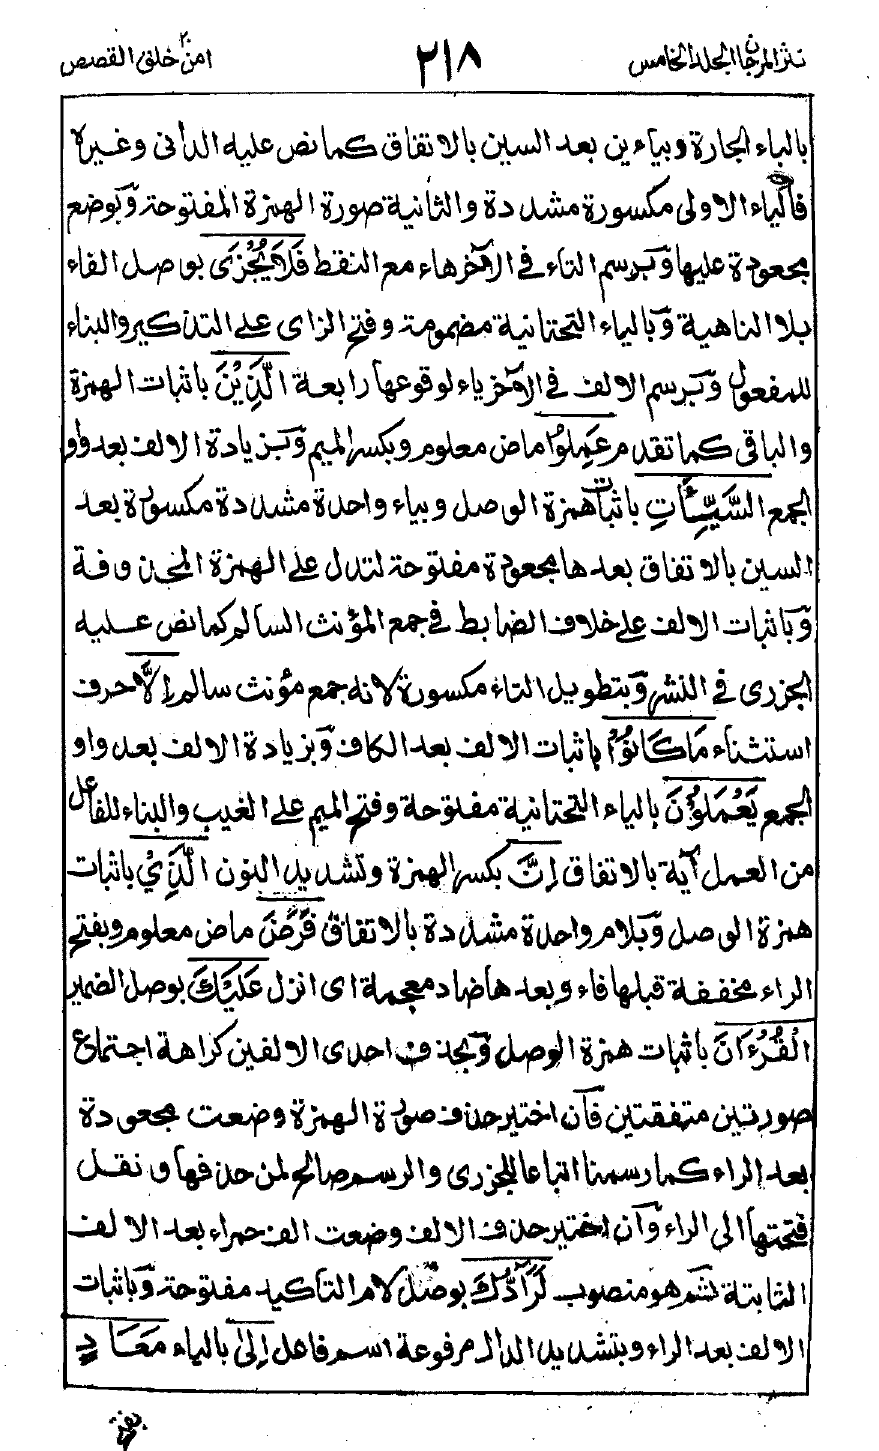 نثر المرجان الجلد الخامس
٢١٨
امن خلق ٢٠ القصص
بالباء الجارة وبياءين بعد السين بالاتفاق كما نص عليه الدانى وغيره
فالياء الاولى مكسورة مشددة والثانية صورة الهمزة المفتوحة وتوضع
مجعودة عليها وبرسم التاء فى الآخر هاء مع النقط فَلَا يُجْزَى بوصل الفاء
بلا الناهية وبالياء التحتانية مضمومة وفتح الزاى على التذكير والبناء
للمفعول وبرسم الالف فى الآخر ياء لوقوعها رابعة الَّذِيْنَ باثبات الهمزة
والباقى كما تقدم عَمِلُوا ماض معلوم وبكسر الميم وبزيادة الالف بعد واو
الجمع السَّيِّئَاتِ باثبات همزة الوصل وبياء واحدة مشددة مكسورة بعد
السين بالاتفاق بعدها مجعودة مفتوحة لتدل على الهمزة المحذوفة
وباثبات الالف على خلاف الضابط فى جمع المؤنث السالم كما نص عليه
الجزرى فى النشر وبتطويل التاء مكسورة لانه جمع مؤنث سالم اِلَّا حرف
استثناء مَا كَانُوْا باثبات الالف بعد الكاف وبزيادة الالف بعد واو
الجمع يَعْمَلُوْنَ بالياء التحتانية مفتوحة وفتح الميم على الغيب والبناء للفاعل
من العمل آية بالاتفاق اِنَّ بكسر الهمزة وتشديد النون الَّذِيْ باثبات
همزة الوصل وبلام واحدة مشددة بالاتفاق فَرَضَ ماض معلوم وبفتح
الراء مخففة قبلها فاء وبعدها ضاد معجمة اى انزل عَلَيْكَ بوصل الضمير
الْقُرْءَانَ باثبات همزة الوصل وبحذف احدى الالفين كراهة اجتماع
صورتين متفقتين فان اختير حذف صورة الهمزة وضعت مجعودة
بعد الراء كما رسمنا اتباعا للجزرى والرسم صالح لمن حذفها ونقل
فتحتها الى الراء وان اختير حذف الالف وضعت الف حمراء بعد الالف
الثابتة ثم هو منصوب لَرَآدُّكَ بوصل لام التاكيد مفتوحة وباثبات
الالف بعد الراء وبتشديد الدال مرفوعة اسم فاعل اِلٰى بالياء مَعَادٍ